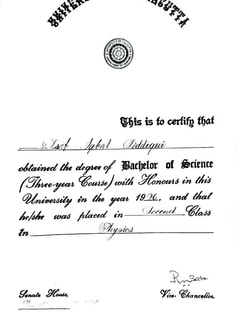 UNIVERSITY OF CALCUTTA
This is to certify that
Iqbal Siddiqui
obtained the degree of Bachelor of Science
(Three-year Course) with Honours in this
University in the year 19 , and that
he/she was placed in Second Class
in Physics
Senate House,
Vice-Chancellor